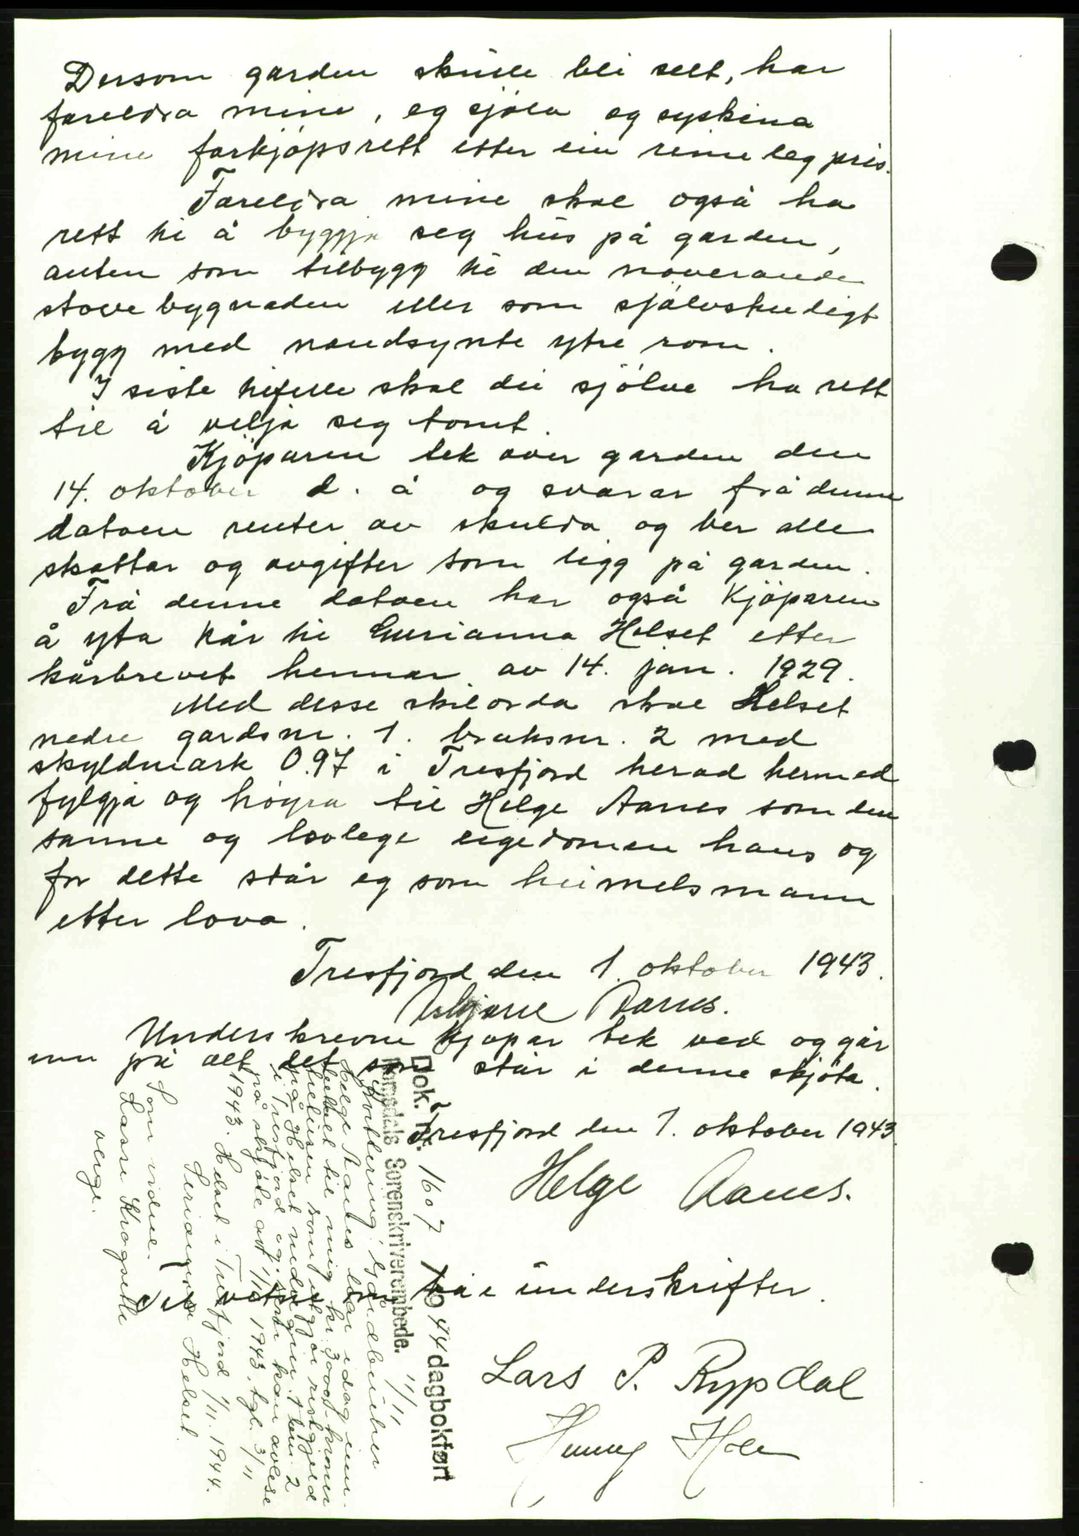 Dersom garden skulle bli selt, har
foreldra mine, eg sjölv og syskena
mine forkjöpsrett etter ein rimeleg pris.
Foreldra mine skal også ha
rett til å byggja seg hus på garden,
anten som tilbygg til den noverande
stovebygnaden eller som sjølvstendigt
bygg med naudsynte ytre rom.
I siste tifelle skal dei sjölve ha rett
til å velja seg tomt.
Kjöparen tek over garden den
14. oktober d. å og svarar frå denne
datoen renter av skulda og ber alle
skattar og avgifter som ligg på garden.
Frå denne datoen har også Kjöparen
å yta kår til Gurianna Helset etter
kårbrevet hennar av 14. jan. 1929.
Med desse skilorda skal Helset
nedre gardsnr. 1. bruksnr. 2 med
skyldmark 0.97 i Tresfjord herad hermed
fylgja og höyra til Helge Aanes som den
sanne og lovlege eigedomen hans og
for dette står eg som heimelsmann
etter lova.
Tresfjord den 1. oktober 1943.
Aanes.
Underskrevne Kjöpar tek ved og går
inn på alt det som står i denne skjöta.
Tresfjord den 1. oktober 1943.
Helge Aanes.
Til vitne om båe underskrifter.
Lars P. Rypdal
Dok. nr. 1607 1944 dagbokført
Romsdals Sorenskriverembede.
11/11
Kvittering: Gardbruker
Helge Aanes har idag inn-
betalt til mig kr. 3000 kroner
som utgjör restgjeld
på Helset nedre gnr. 1 bnr. 2
i Tresfjord og
på skjöte av 1/10 1943, tgl. 3/11
1943. Helset i Tresfjord 1/11. 1944.
Helset.
Som vidne.
Lasse Kragsette
verge.